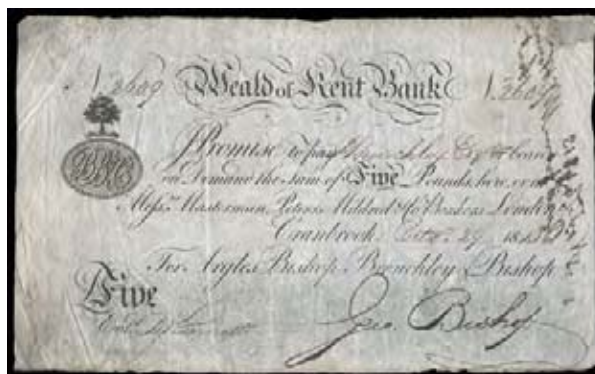 N 2609 Weald of Kent Bank N 2609
I Promise to pay Brenchley Esqr or bearer
on Demand the sum of Five Pounds here or at
Messrs. Masterman, Peters, Mildred & Co Bankers London
Cranbrook. 29 181
For Argles Bishop Brenchley & Bishop
Five
Geo Bishop